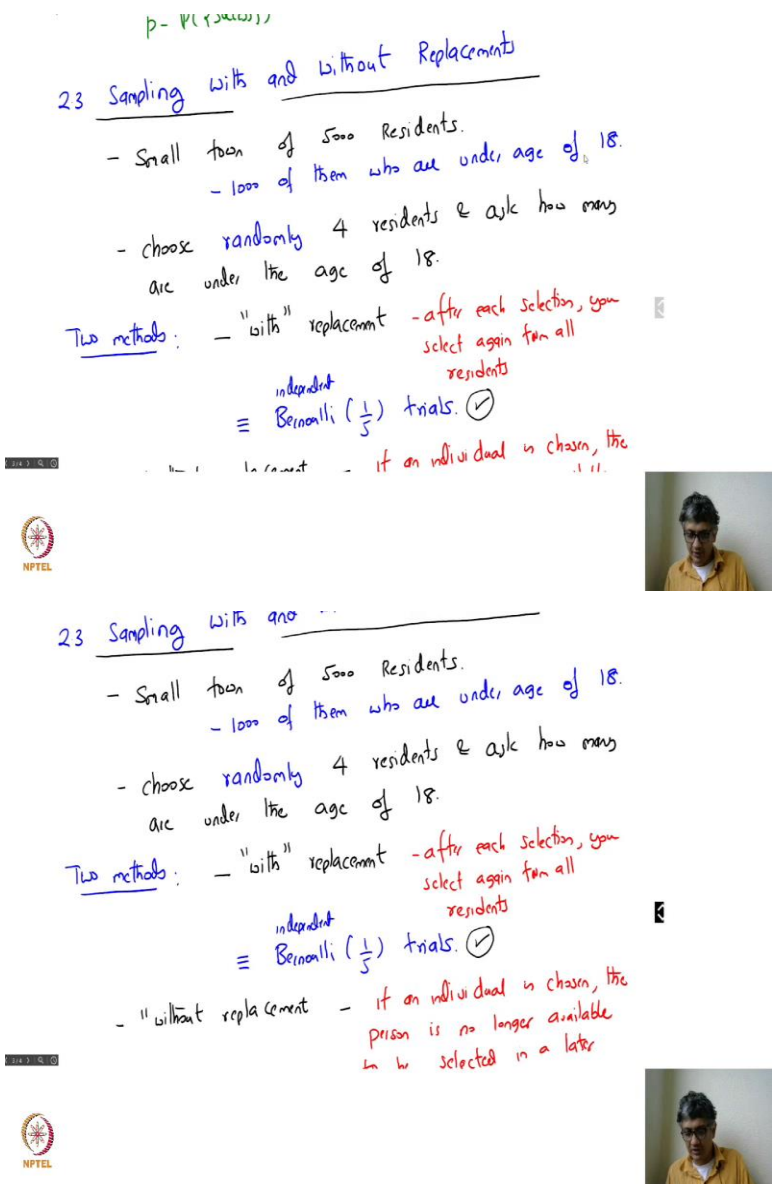 2.3 Sampling with and without Replacements
- Small town of 5000 Residents.
- 1000 of them who are under age of 18.
- choose randomly 4 residents & ask how many
are under the age of 18.
Two methods: - "with" replacement - after each selection, you
select again from all
residents
independent
≡ Bernoulli (1/5) trials. ✓
- if an individual is chosen, the
NPTEL
2.3 Sampling with and
- Small town of 5000 Residents.
- 1000 of them who are under age of 18.
- choose randomly 4 residents & ask how many
are under the age of 18.
Two methods: - "with" replacement - after each selection, you
select again from all
residents
independent
≡ Bernoulli (1/5) trials. ✓
- "without replacement - if an individual is chosen, the
person is no longer available
to be selected in a later
NPTEL